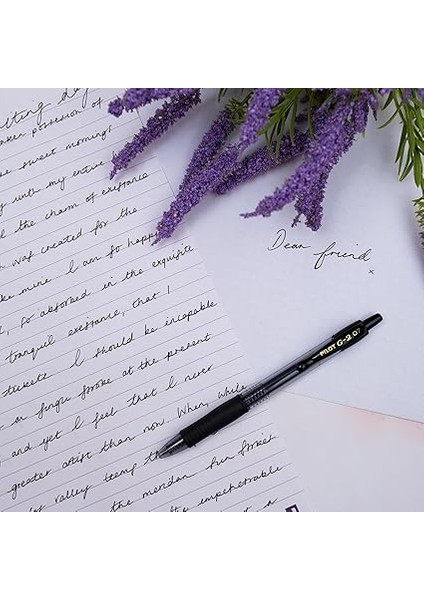 taken possession of
sweet mornings
with my entire
the charm of existence
was created for the
mine. I am so happy
so absorbed in the exquisite
tranquil existence, that I
I should be incapable
single stroke at the present
and yet I feel that I never
greater artist than now. When, while
valley teems
the meridian sun
impenetrable
Dear friend
x
PILOT G-2 07